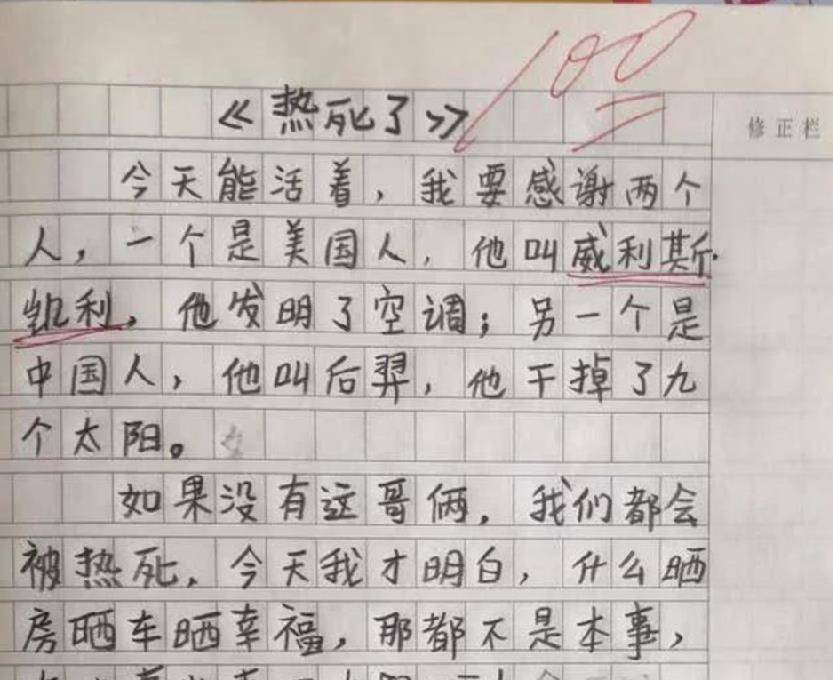 100
《热死了》
修正栏
今天能活着，我要感谢两个
人，一个是美国人，他叫威利斯·
凯利，他发明了空调；另一个是
中国人，他叫后羿，他干掉了九
个太阳。
如果没有这哥俩，我们都会
被热死，今天我才明白，什么晒
房晒车晒幸福，那都不是本事，